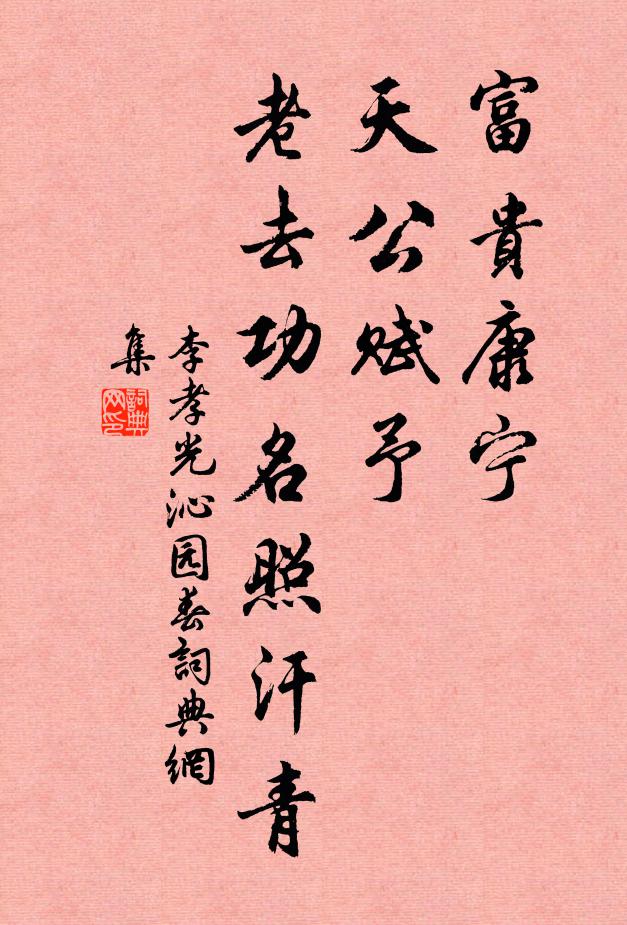 富貴康宁
天公赋予
老去功名照汗青
李孝光沁园春詞典網
集
詞典
网印